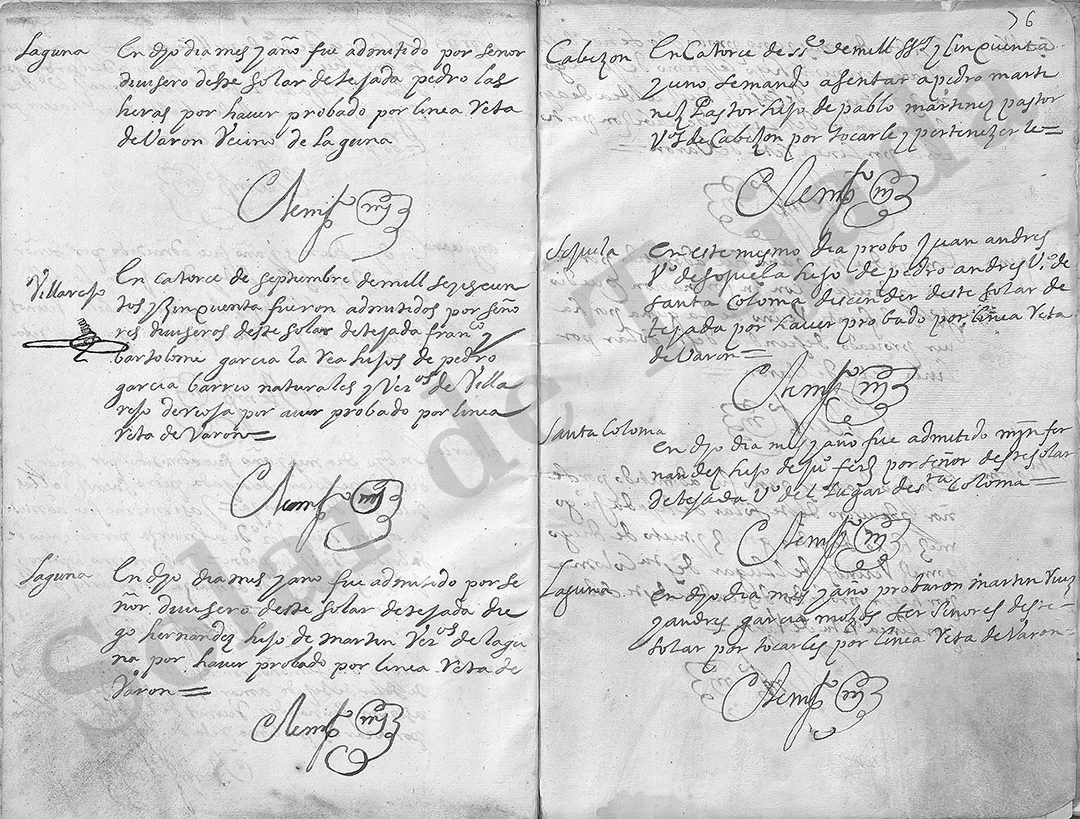 Laguna
En dho dia mes y año fue admitido por señor
divisero deste solar de tejada pedro las
heras por haver probado por linea Reta
de Varon Vecino de Laguna
Villarejo
En catorce de septiembre de mill seyscien
tos y Zinquenta fueron admitidos por seño
res diviseros deste solar de tejada franco y
bartolome garcia la Vea hijos de pedro
garcia barrio naturales y Vezos de Villa
rejo por aver probado por linea
Reta de Varon=
Laguna
En dho dia mes y año fue admitido por se
ñor divisero deste solar de tejada die
go hernandez hijo de martin Vezos de lagu
na por haver probado por linea Reta de
Varon=
76
Cabezon
En Catorce de sSe de mill SSs y Cinquenta
y uno se mando asentar a pedro marti
nez Pastor hijo de pablo martinez pastor
Vos de Cabezon por tocarle y pertenezerle=
Sojuela
en este mismo dia probo Juan andres
Vo de sojuela hijo de pedro andres Vo de
santa Coloma descender deste solar de
tejada por haver probado por linea Reta
de Varon=
Santa Coloma
en dho dia mes y año fue admitido myn fer
nandez hijo de juo ferz por señor deste solar
de tejada Vo del Lugar de sta Coloma=
Laguna
en dho dia mes y año probaron martin
y andres garcia mozos ser señores deste
solar por tocarles por linea Reta de Varon=
Solar de Tejada